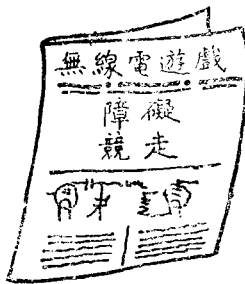 無線電遊戲
障礙
競走